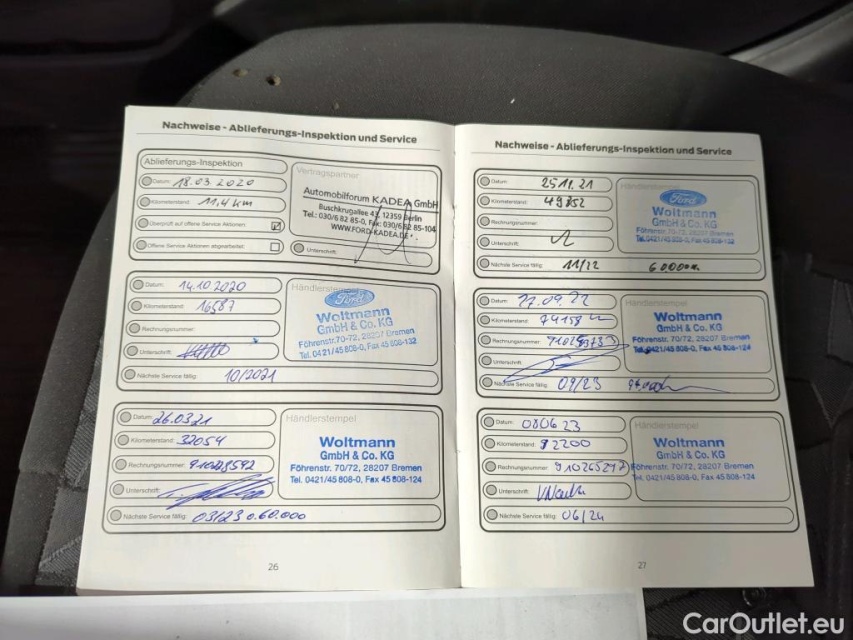 Nachweise - Ablieferungs-Inspektion und Service
Ablieferungs-Inspektion
Datum: 18.03.2020
Kilometerstand: 11,4 km
Überprüft auf offene Service Aktionen:
Offene Service Aktionen abgearbeitet:
Vertragspartner
Automobilforum KADEA GmbH
Buschkrugallee 43, 12359 Berlin
Tel.: 030/6 82 85-0, Fax: 030/6 82 85-104
WWW.FORD-KADEA.DE
Unterschrift:
Datum: 14.10.2020
Kilometerstand: 16587
Rechnungsnummer:
Unterschrift:
Nächste Service fällig: 10/2021
Händlerstempel
Ford
Woltmann
GmbH & Co. KG
Föhrenstr. 70/72, 28207 Bremen
Tel. 0421/45 808-0, Fax 45 808-132
Datum: 26.03.21
Kilometerstand: 32054
Rechnungsnummer:
Unterschrift:
Nächste Service fällig: 03/23 o. 60.000
Händlerstempel
Woltmann
GmbH & Co. KG
Föhrenstr. 70/72, 28207 Bremen
Tel. 0421/45 808-0, Fax 45 808-124
26
Nachweise - Ablieferungs-Inspektion und Service
Datum: 25.11.21
Kilometerstand: 49352
Rechnungsnummer:
Unterschrift:
Nächste Service fällig: 11/22
Händlerstempel
Ford
Woltmann
GmbH & Co. KG
Föhrenstr. 70/72, 28207 Bremen
Tel. 0421/45 808-0, Fax 45 808-132
Datum: 27.09.22
Kilometerstand: 74158
Rechnungsnummer:
Unterschrift:
Nächste Service fällig: 09/23
Händlerstempel
Woltmann
GmbH & Co. KG
Föhrenstr. 70/72, 28207 Bremen
Tel. 0421/45 808-0, Fax 45 808-124
Datum: 080623
Kilometerstand: 92200
Rechnungsnummer: 910265217
Unterschrift:
Nächste Service fällig: 06/24
Händlerstempel
Woltmann
GmbH & Co. KG
Föhrenstr. 70/72, 28207 Bremen
Tel. 0421/45 808-0, Fax 45 808-124
27
CarOutlet.eu